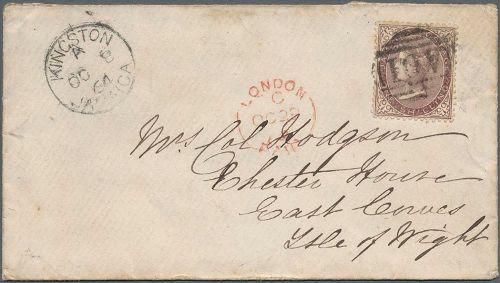 KINGSTON
A
OC 8
64
JAMAICA
LONDON
C
OC 29
PAID
A01
Mrs Col. Hodgson
Chester House
East Cowes
Isle of Wight